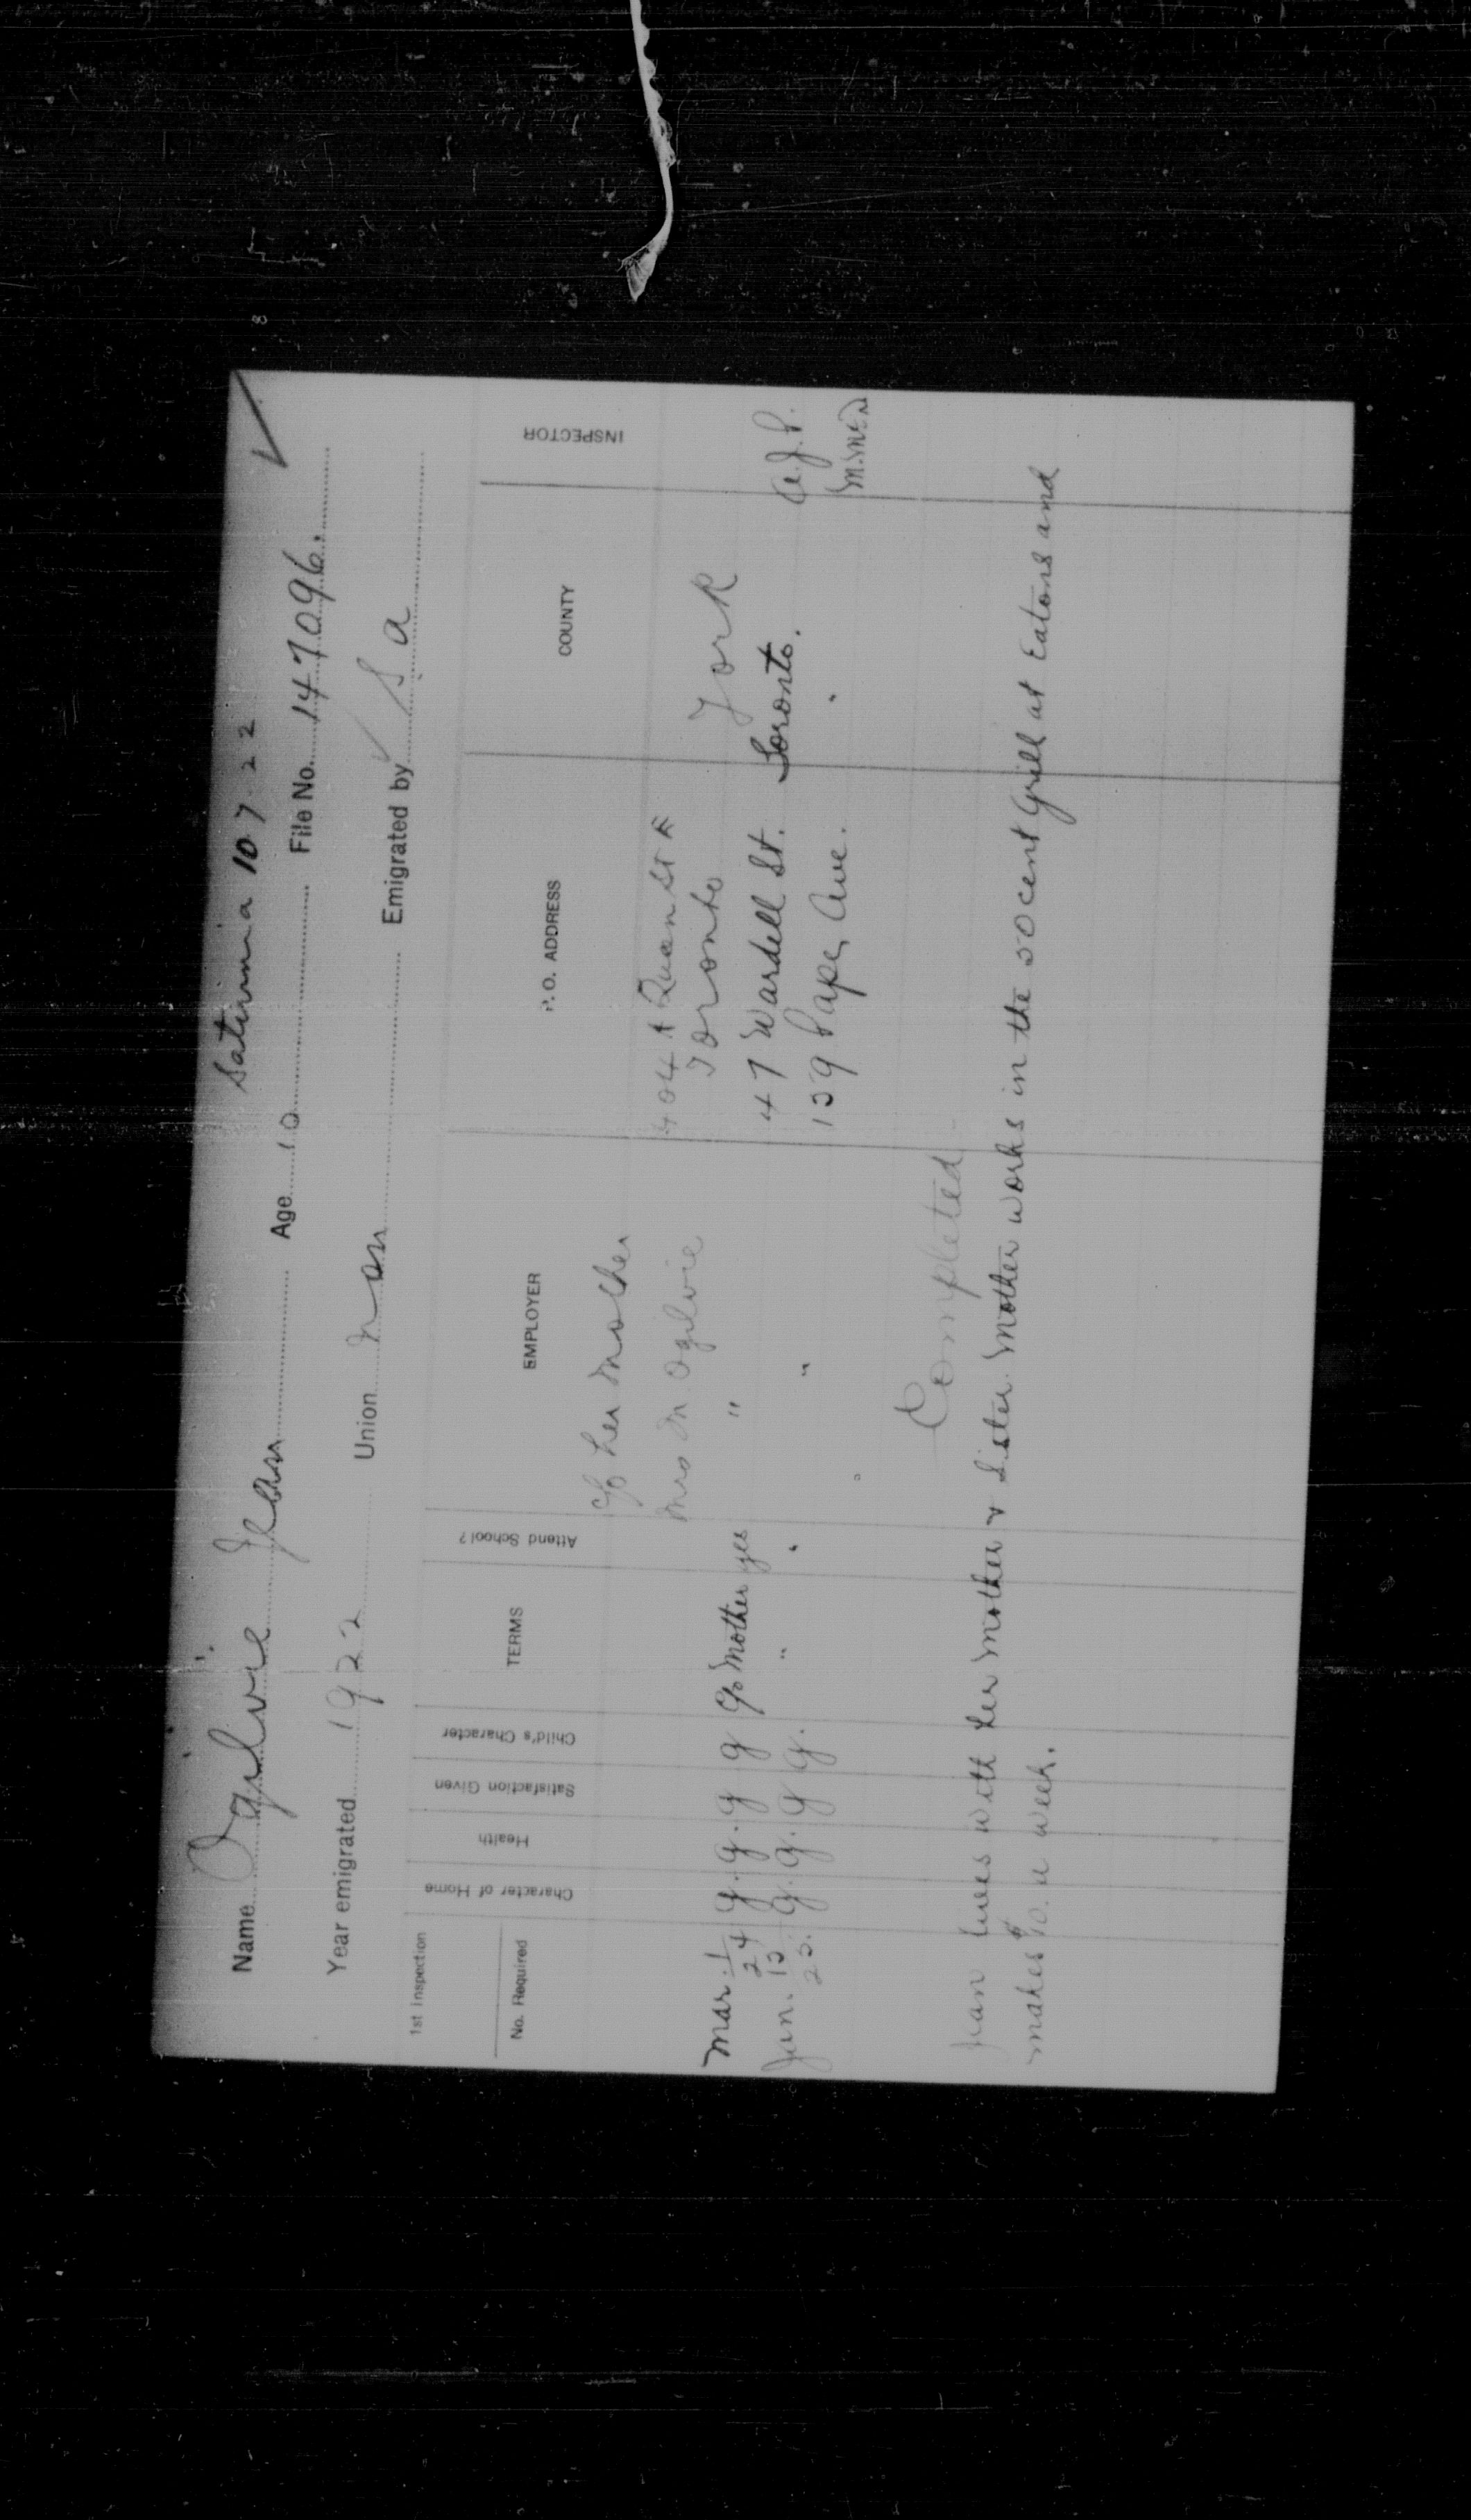 Saturnia 10 7 22
Name Ogilvie Jean Age 10 File No. 147096.
Year emigrated 1922 Union non Emigrated by S a
1st Inspection
No. Required Character of Home Health Satisfaction Given Child's Character TERMS Attend School? EMPLOYER P.O. ADDRESS COUNTY INSPECTOR
c/o her Mother
Mrs M Ogilvie 404A Queen St E
Toronto York
Mar. 1/24 g. g. g g c/o Mother yes " 47 Wardell St. Toronto. a.J.P.
Jan. 13/25. g. g. g g. " " " 139 Pape Ave. "
Completed
Jean lives with her mother & sister. Mother works in the 50 cent Grill at Eatons and
makes $10. a week.